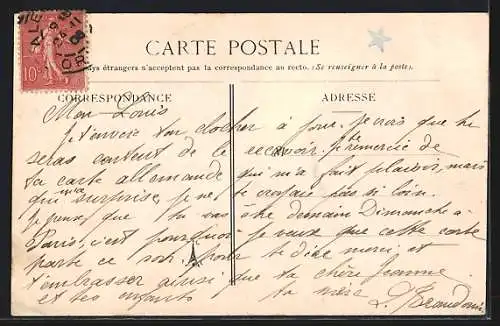 CARTE POSTALE
ys étrangers n'acceptent pas la correspondance au recto. (Se renseigner à la poste).
CORRESPONDANCE ADRESSE
Mon Louis
je t'envoie ton clocher à jour. je crois que tu
seras content de le recevoir. je te remercie de
ta carte allemande qui m'a fait plaisir, mais
qui m'a surprise, je ne te croyais pas si loin.
je peux que tu vas être demain Dimanche à
Paris, c'est pourquoi je veux que cette carte
parte ce soir pour te dire merci et
t'embrasser ainsi que ta chère femme
et tes enfants ta mère
10